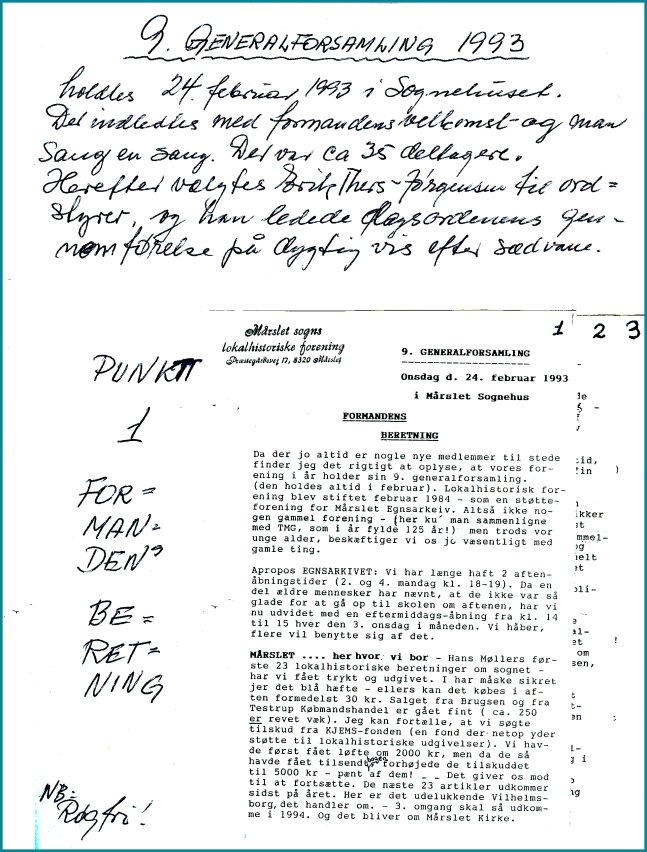 9. GENERALFORSAMLING 1993
holdtes 24. februar 1993 i Sognehuset.
Det indledtes med formandens velkomst - og man
sang en sang. Der var ca 35 deltagere.
Herefter valgtes Erik Thers-Jørgensen til ord=
styrer, og han ledede dagsordenens gen-
nemførelse på dygtig vis efter sædvane.
PUNKT
1
FOR=
MAN=
DENS
BE=
RET=
NING
NB:
Røgfri!
1 2 3
Mårslet sogns
lokalhistoriske forening
Præstegårdsvej 17, 8320 Mårslet
9. GENERALFORSAMLING
Onsdag d. 24. februar 1993
i Mårslet Sognehus
FORMANDENS
BERETNING
Da der jo altid er nogle nye medlemmer til stede
finder jeg det rigtigt at oplyse, at vores for-
ening i år holder sin 9. generalforsamling.
(den holdes altid i februar). Lokalhistorisk for-
ening blev stiftet februar 1984 - som en støtte-
forening for Mårslet Egnsarkeiv. Altså ikke no-
gen gammel forening - (her ku' man sammenligne
med TMG, som i år fylde 125 år!) men trods vor
unge alder, beskæftiger vi os jo væsentligt med
gamle ting.
Apropos EGNSARKIVET: Vi har længe haft 2 aften-
åbningstider (2. og 4. mandag kl. 18-19). Da en
del ældre mennesker har nævnt, at de ikke var så
glade for at gå op til skolen om aftenen, har vi
nu udvidet med en eftermiddags-åbning fra kl. 14
til 15 hver den 3. onsdag i måneden. Vi håber,
flere vil benytte sig af det.
MÅRSLET .... her hvor vi bor - Hans Møllers før-
ste 23 lokalhistoriske beretninger om sognet -
har vi fået trykt og udgivet. I har måske sikret
jer det blå hæfte - ellers kan det købes i af-
ten formedelst 30 kr. Salget fra Brugsen og fra
Testrup Købmandshandel er gået fint ( ca. 250
er revet væk). Jeg kan fortælle, at vi søgte
tilskud fra KJEMS-fonden (en fond der netop yder
støtte til lokalhistoriske udgivelser). Vi hav-
de først fået løfte om 2000 kr, men da de så
havde fået tilsendt bogen forhøjede de tilskuddet
til 5000 kr - pænt af dem! _ _ Det giver os mod
til at fortsætte. De næste 23 artikler udkommer
sidst på året. Her er det udelukkende Vilhelms-
borg, det handler om. - 3. omgang skal så udkom-
me i 1994. Og det bliver om Mårslet Kirke.